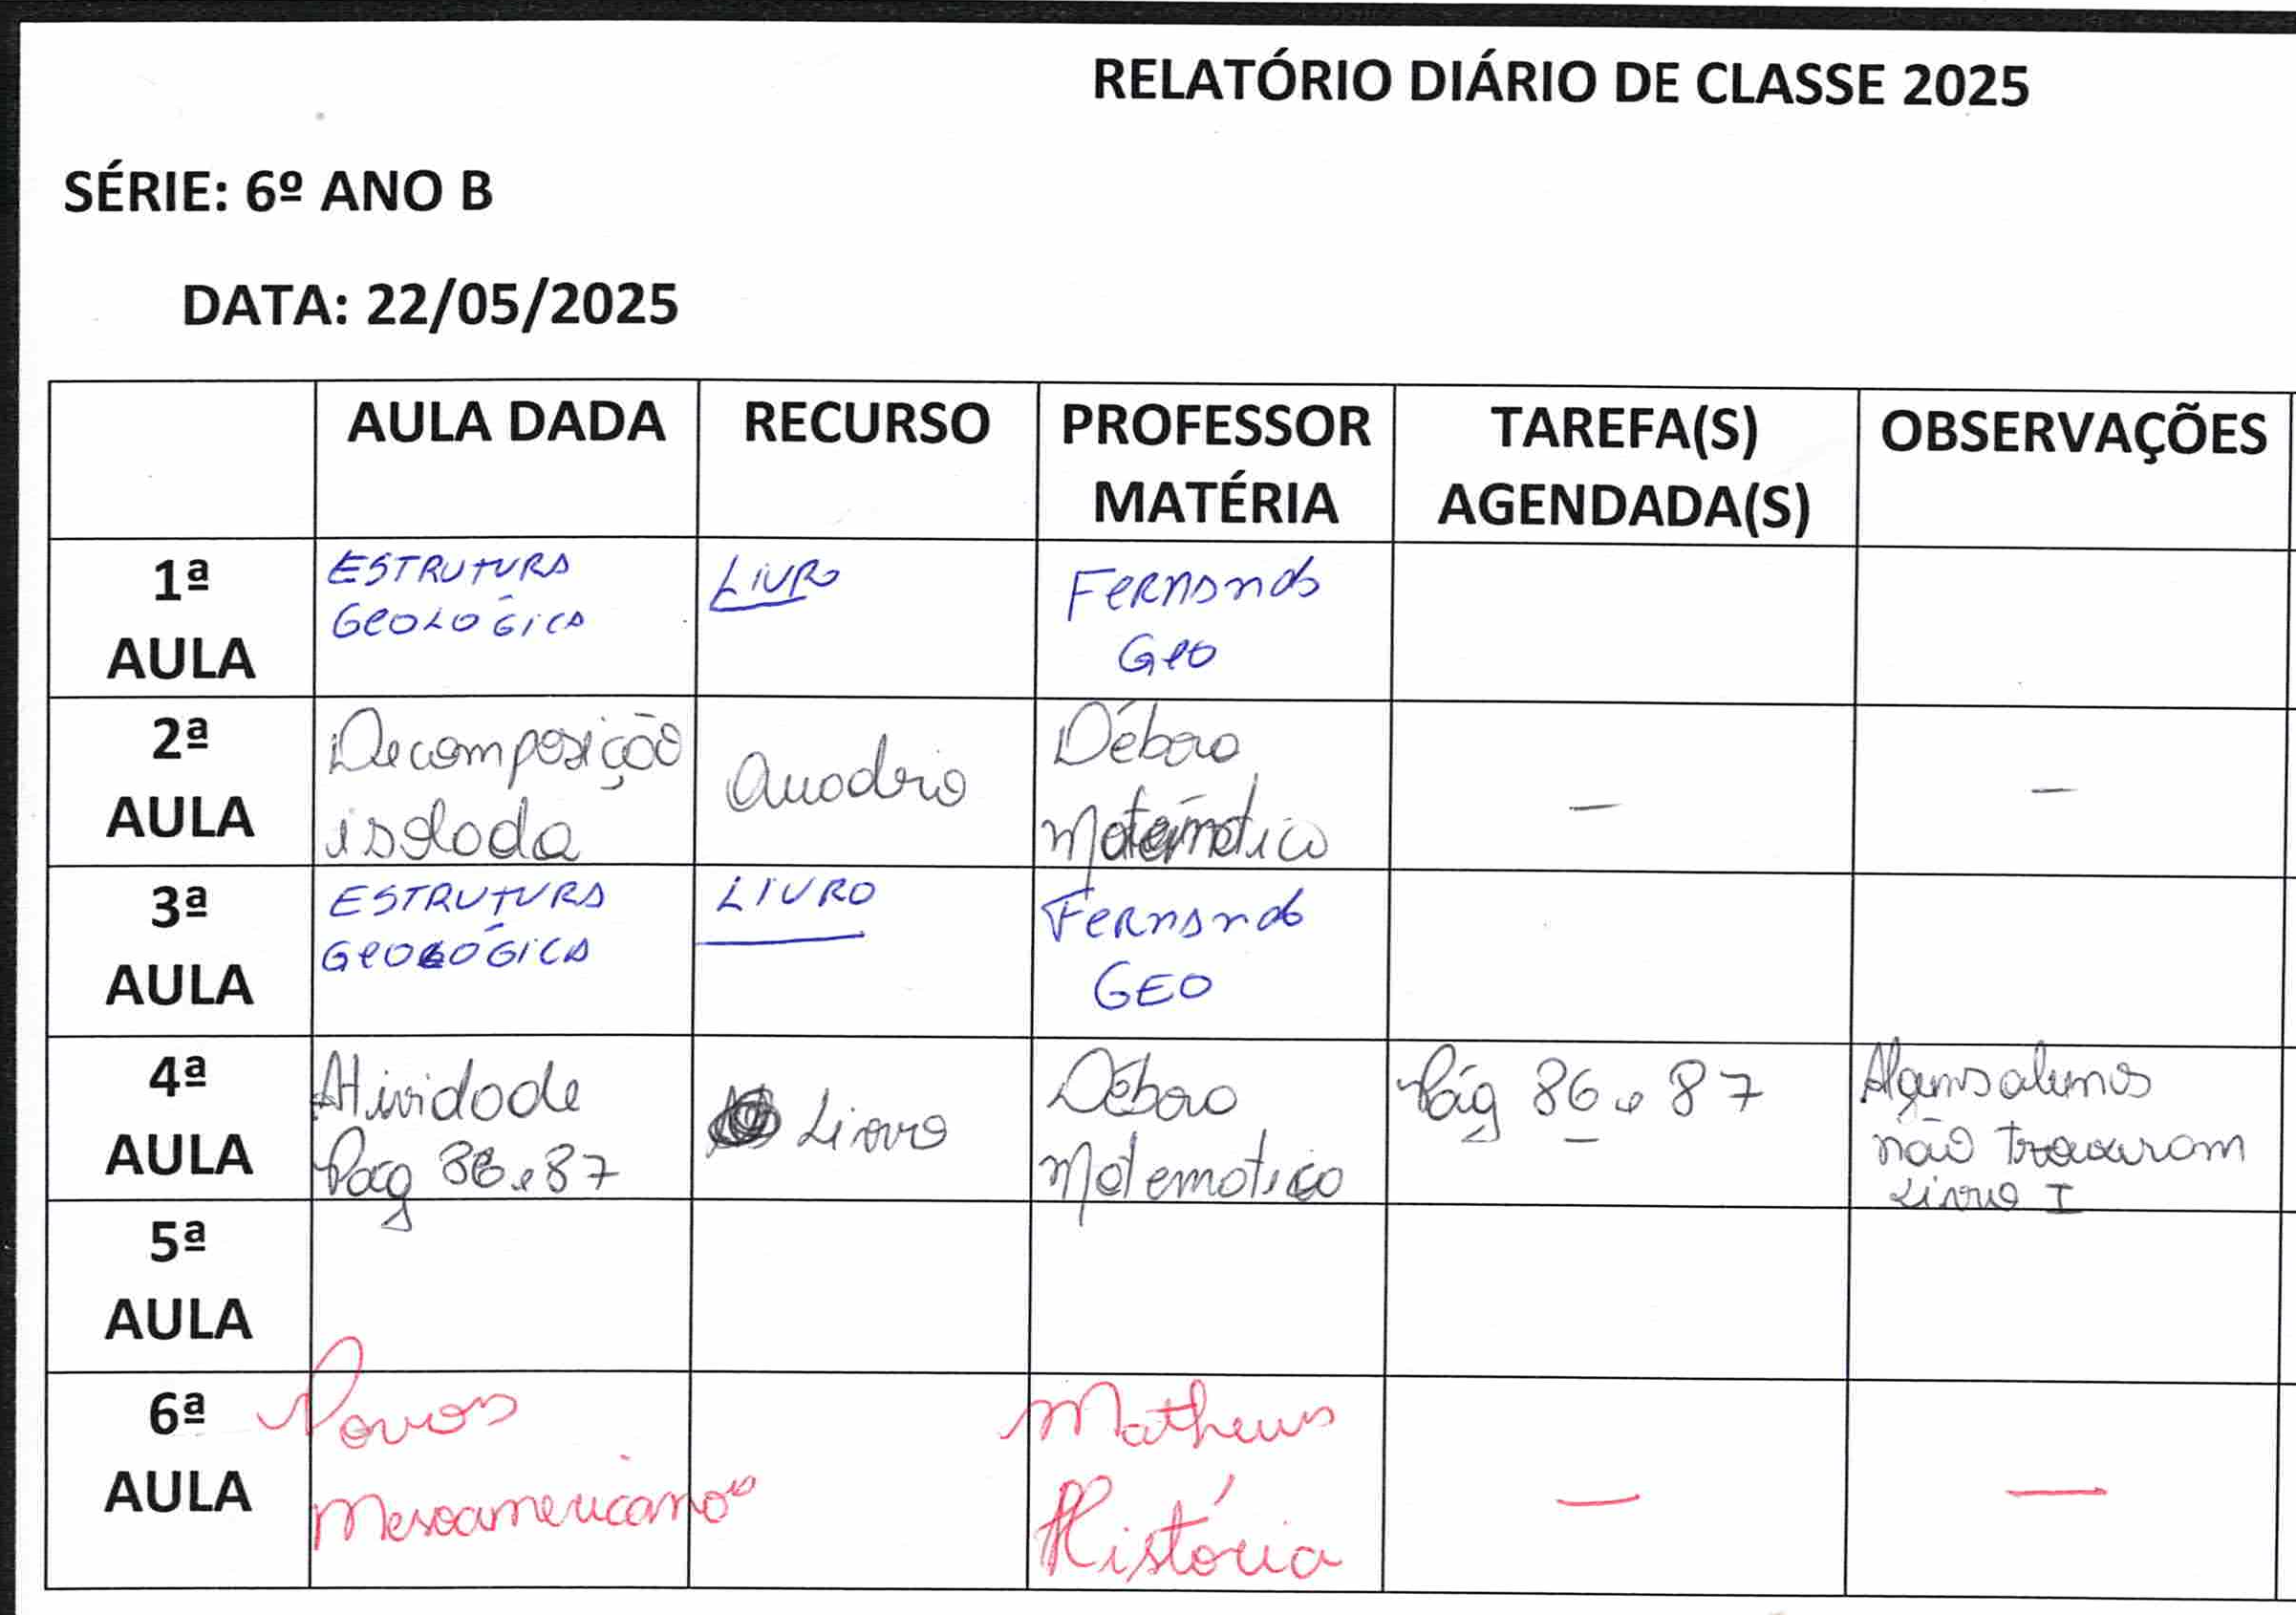 RELATÓRIO DIÁRIO DE CLASSE 2025
SÉRIE: 6º ANO B
DATA: 22/05/2025
AULA DADA
RECURSO
PROFESSOR
MATÉRIA
TAREFA(S)
AGENDADA(S)
OBSERVAÇÕES
1ª
AULA
ESTRUTURA
GEOLÓGICA
LIVRO
Fernando
Geo
2ª
AULA
Decomposição
isolada
Quadrio
Débora
Matemática
—
—
3ª
AULA
ESTRUTURA
GEOLÓGICA
LIVRO
Fernando
GEO
4ª
AULA
Atividade
Pág 86 e 87
Livro
Débora
Matematica
Pág 86 e 87
Alguns alunos
não trouxeram
Livro I
5ª
AULA
6ª
AULA
Povos
Mesoamericanos
Matheus
História
—
—